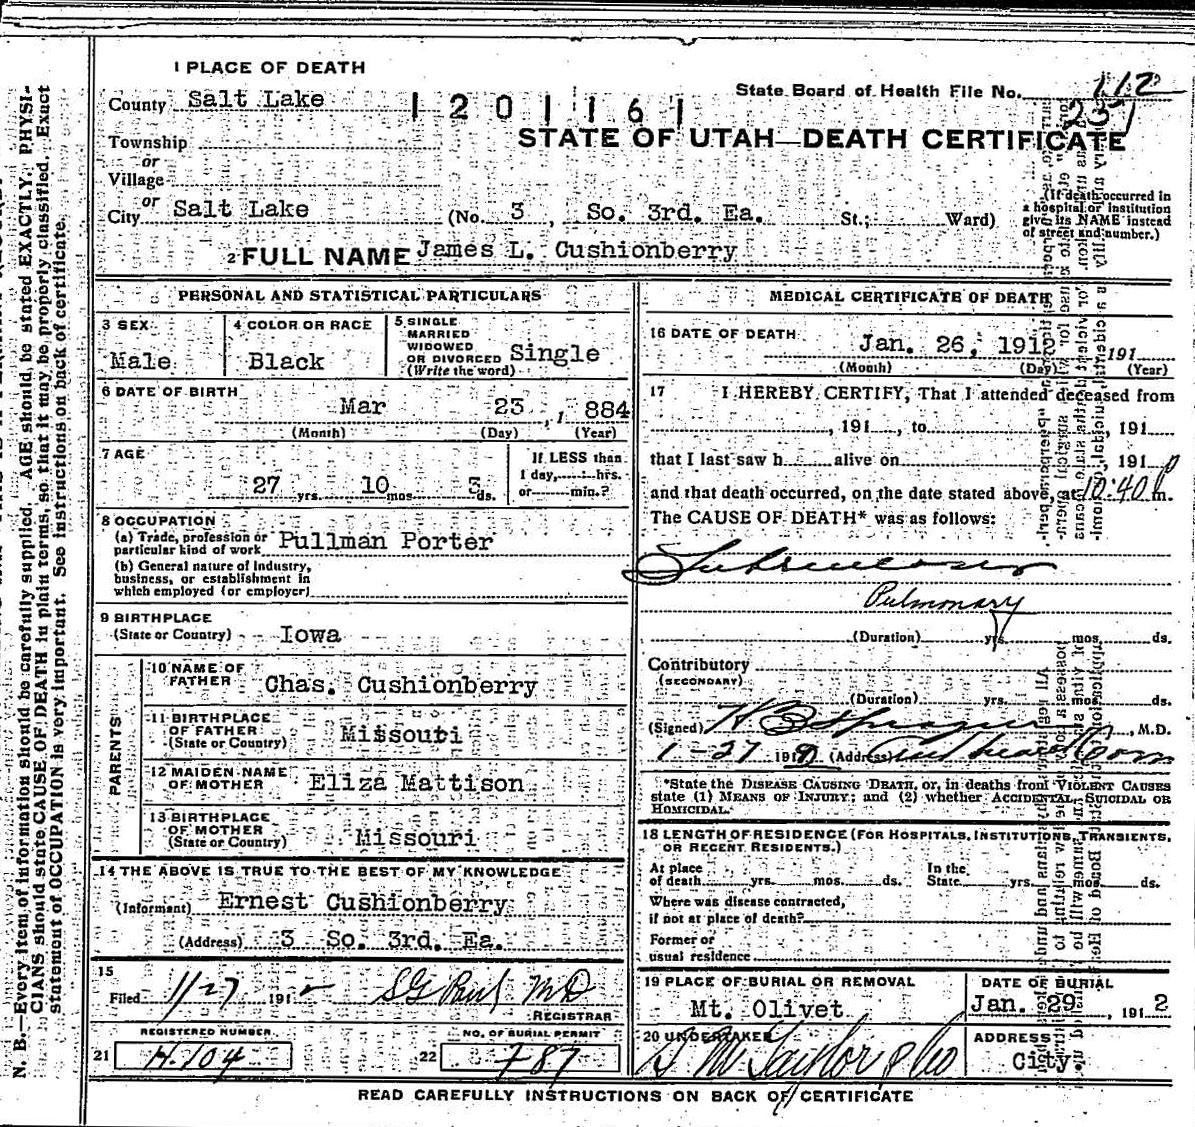 1 PLACE OF DEATH
County Salt Lake
1201161
State Board of Health File No. 112
237
STATE OF UTAH—DEATH CERTIFICATE
Township
or
Village
or
City Salt Lake (No. 3, So. 3rd. Ea. St.; Ward)
(If death occurred in
a hospital or institution
give its NAME instead
of street and number.)
2 FULL NAME James L. Cushionberry
PERSONAL AND STATISTICAL PARTICULARS
3 SEX
Male
4 COLOR OR RACE
Black
5 SINGLE
MARRIED
WIDOWED
OR DIVORCED Single
(Write the word)
6 DATE OF BIRTH
Mar 23, 1 884
(Month) (Day) (Year)
7 AGE
27 yrs. 10 mos 3 ds.
If LESS than
1 day, hrs.
or min.?
8 OCCUPATION
(a) Trade, profession or
particular kind of work Pullman Porter
(b) General nature of Industry,
business, or establishment in
which employed (or employer)
9 BIRTHPLACE
(State or Country) Iowa
PARENTS
10 NAME OF
FATHER Chas. Cushionberry
11 BIRTHPLACE
OF FATHER
(State or Country) Missouri
12 MAIDEN NAME
OF MOTHER Eliza Mattison
13 BIRTHPLACE
OF MOTHER
(State or Country) Missouri
14 THE ABOVE IS TRUE TO THE BEST OF MY KNOWLEDGE
(Informant) Ernest Cushionberry
(Address) 3 So. 3rd. Ea.
15
Filed 1/27 1912 S G Paul M D
REGISTRAR
REGISTERED NUMBER
21 H.104
NO. OF BURIAL PERMIT
22 787
MEDICAL CERTIFICATE OF DEATH
16 DATE OF DEATH
Jan. 26, 191 191
(Month) (Day) (Year)
17 I HEREBY CERTIFY, That I attended deceased from
, 191 , to , 191
that I last saw h alive on , 191
and that death occurred, on the date stated above, at 10:40 P m.
The CAUSE OF DEATH* was as follows:
Tuberculosis
Pulmonary
(Duration) yrs. mos. ds.
Contributory
(SECONDARY)
(Duration) yrs. mos. ds.
(Signed) , M.D.
1-27 191 (Address)
*State the DISEASE CAUSING DEATH, or, in deaths from VIOLENT CAUSES
state (1) MEANS OF INJURY; and (2) whether ACCIDENTAL, SUICIDAL OR
HOMICIDAL.
18 LENGTH OF RESIDENCE (FOR HOSPITALS, INSTITUTIONS, TRANSIENTS,
OR RECENT RESIDENTS.)
At place
of death yrs. mos. ds.
In the
State yrs. mos. ds.
Where was disease contracted,
if not at place of death?
Former or
usual residence
19 PLACE OF BURIAL OR REMOVAL
Mt. Olivet
DATE OF BURIAL
Jan. 29, 191 2
20 UNDERTAKER
S M Taylor & Co
ADDRESS
City.
READ CAREFULLY INSTRUCTIONS ON BACK OF CERTIFICATE
N. B.—Every item of information should be carefully supplied. AGE should be stated EXACTLY. PHYSI-
CIANS should state CAUSE OF DEATH in plain terms, so that it may be properly classified. Exact
statement of OCCUPATION is very important. See instructions on back of certificate.